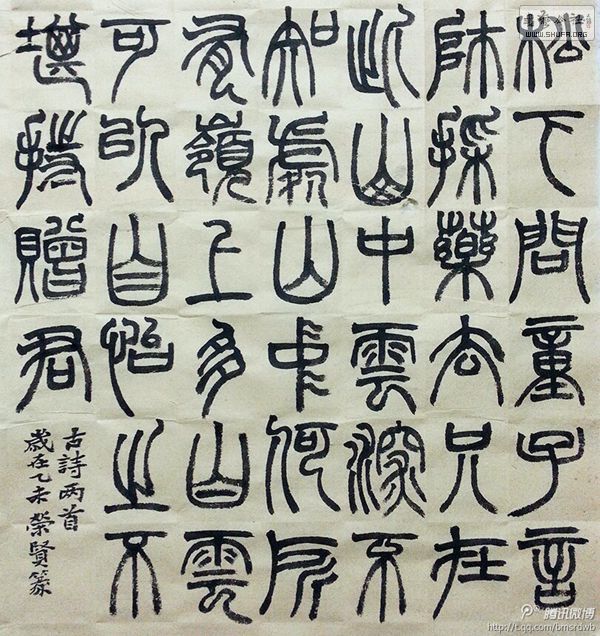 松下問童子言
師採藥去只在
此山中雲深不
知處山中何所
有嶺上多白雲
可以自怡之不
堪持贈君
古詩两首
歲在乙未榮賢篆
WWW.SHUFA.ORG
腾讯微博
http://t.qq.com/bmsrdwb